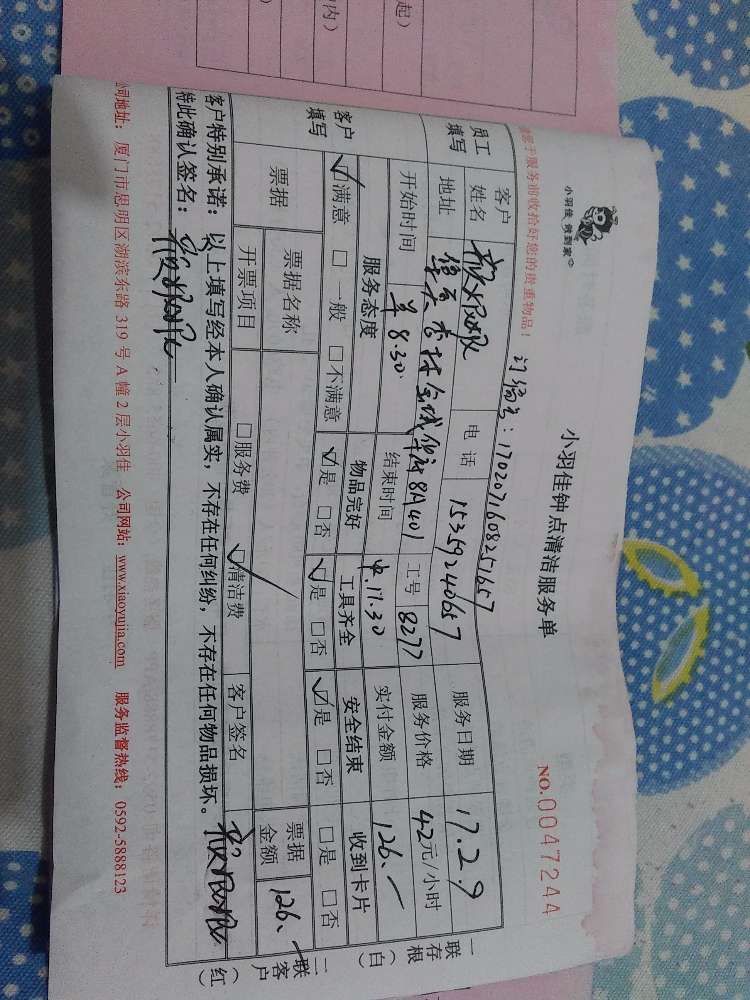 起）
内）
小羽佳 做到家
小羽佳钟点清洁服务单
NO.0047244
于服务前收拾好您的贵重物品！
订编号：1702071608251657
员工填写
客户姓名
电话
15359240657
服务日期
17.2.9
地址
信言 金域华府8A401
工号
8277
服务价格
42元/小时
开始时间
早8.30.
结束时间
中.11.30
实付金额
126.一
客户填写
服务态度
物品完好
工具齐全
安全结束
收到卡片
☑满意 □一般 □不满意
☑是 □否
☑是 □否
☑是 □否
□是 □否
票据
票据名称
开票项目
□服务费
☑清洁费
客户签名
票据金额
126.一
客户特别承诺：以上填写经本人确认属实，不存在任何纠纷，不存在任何物品损坏。
特此确认签名：
公司地址：厦门市思明区湖滨东路 319 号 A 幢 2 层小羽佳 公司网站：www.xiaoyujia.com 服务监督热线：0592-5888123
一联存根（白）
二联客户（红）